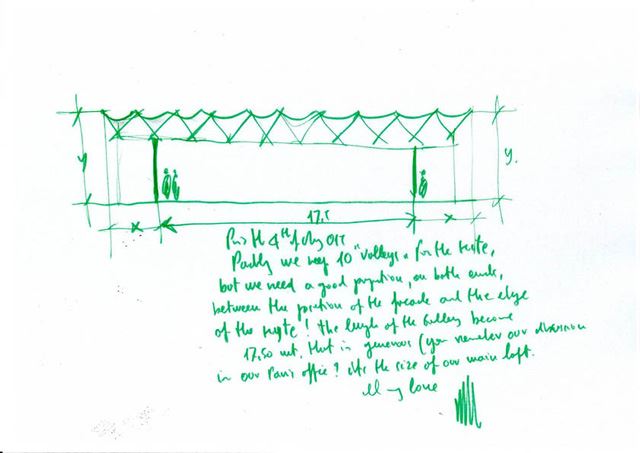 y
y.
17.5
x
x
the 4th of
we 10 "valleys" for the
but we need a good proportion, on both ends,
between the position of the facade and the edge
of the ! the length of the Gallery become
17.50 mt. that is generous (you remember our discussion
in our Paris office? its the size of our main loft.
all my love